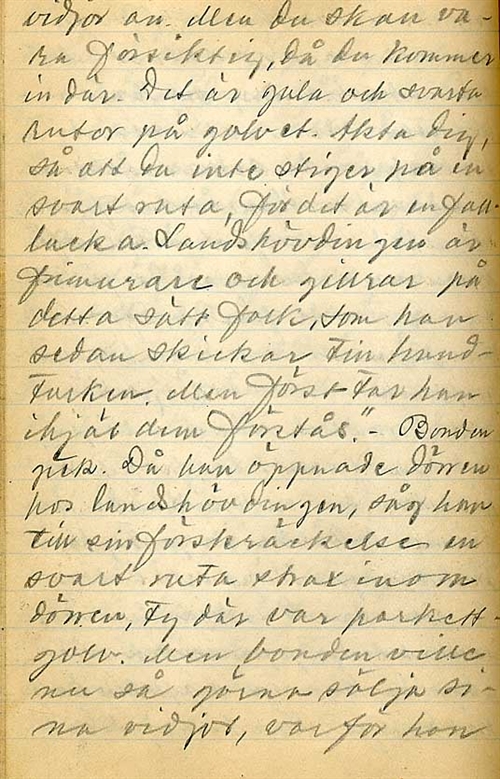 vidjor av. Men du skall va-
ra försiktig, då du kommer
in där. Det är gula och svarta
rutor på golvet. Akta dig,
så att du inte stiger på en
svart ruta, för det är en fall-
lucka. Landshövdingen är
frimurare och gillrar på
detta sätt folk, som han
sedan skickar till hund-
turken. Men först tar han
ihjäl dem förstås." - Bonden
gick. Då han öppnade dörren
hos landshövdingen, såg han
till sin förskräckelse en
svart ruta strax inom
dörren, ty där var parkett-
golv. Men bonden ville
nu så gärna sälja si-
na vidjor, varför han